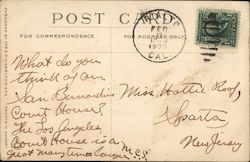 POST CARD
FOR CORRESPONDENCE
FOR ADDRESS ONLY.
RIALTO
FEB
CAL.
What do you
think of our
San Bernardino
Court House?
The Los Angeles
Court House is a
Great many times larger
M.C.S.
Miss Hattie Roof,
Sparta
New Jersey